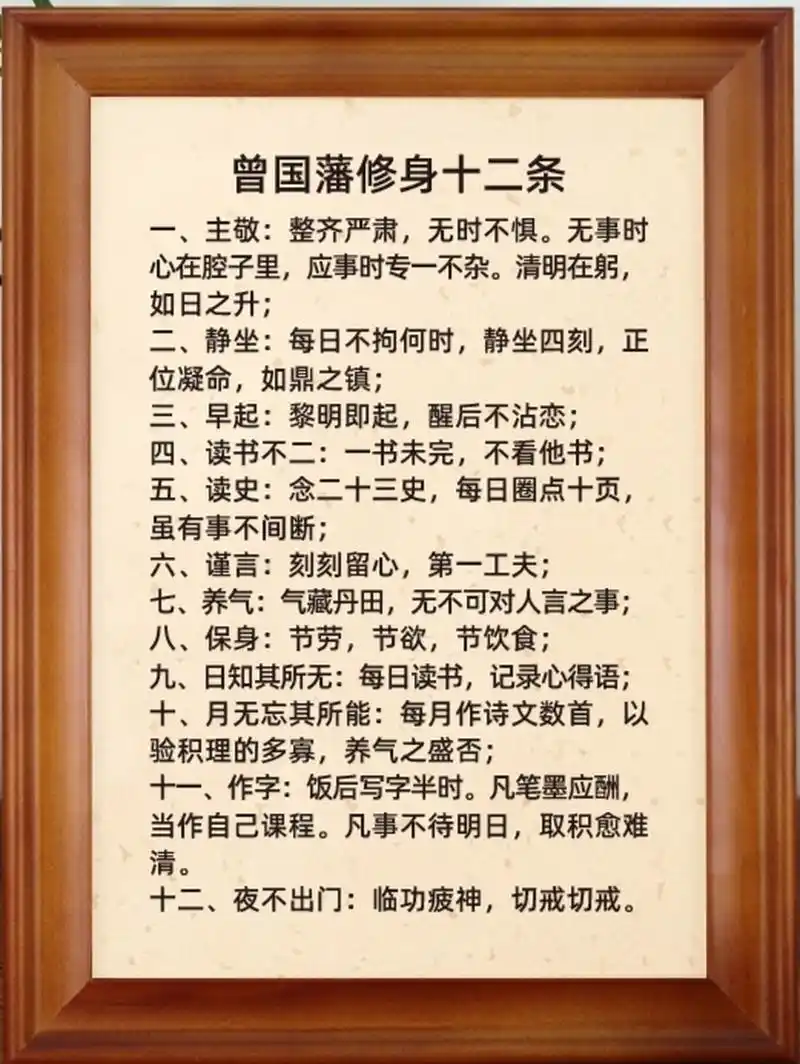 曾国藩修身十二条
一、主敬：整齐严肃，无时不惧。无事时
心在腔子里，应事时专一不杂。清明在躬，
如日之升；
二、静坐：每日不拘何时，静坐四刻，正
位凝命，如鼎之镇；
三、早起：黎明即起，醒后不沾恋；
四、读书不二：一书未完，不看他书；
五、读史：念二十三史，每日圈点十页，
虽有事不间断；
六、谨言：刻刻留心，第一工夫；
七、养气：气藏丹田，无不可对人言之事；
八、保身：节劳，节欲，节饮食；
九、日知其所无：每日读书，记录心得语；
十、月无忘其所能：每月作诗文数首，以
验积理的多寡，养气之盛否；
十一、作字：饭后写字半时。凡笔墨应酬，
当作自己课程。凡事不待明日，取积愈难
清。
十二、夜不出门：临功疲神，切戒切戒。